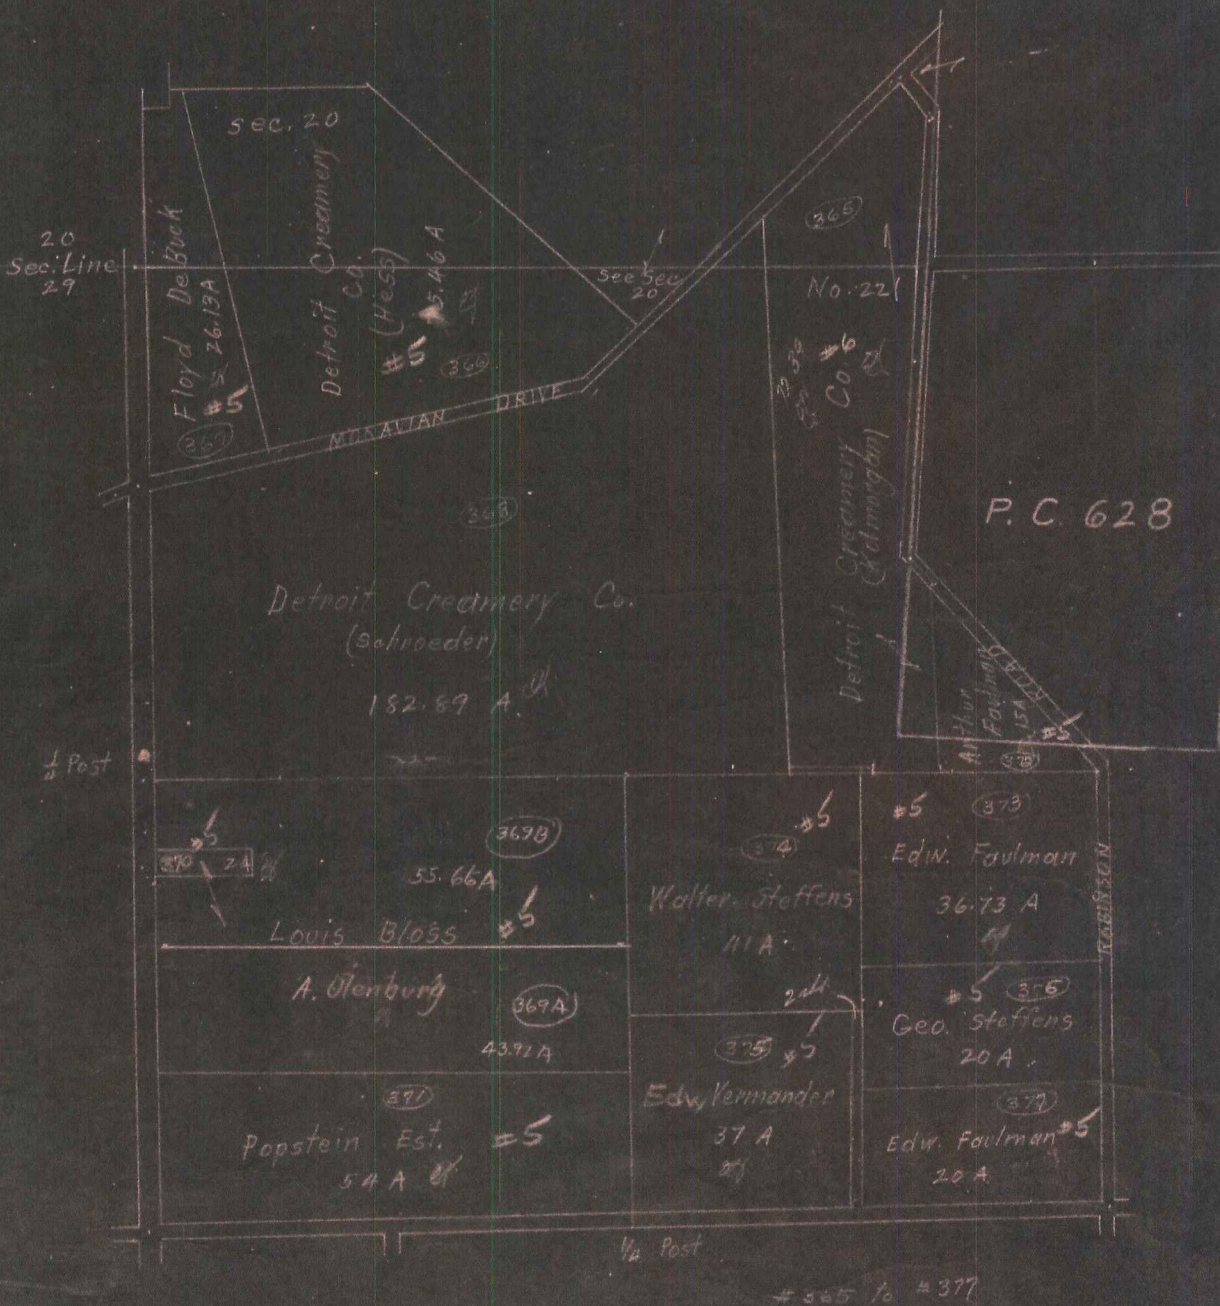 sec. 20
20
Sec. Line
29
Floyd DeBuck
26.13 A
#5
367
Detroit Creamery
Co.
(Hess)
5.46 A
#5
366
See Sec
20
365
No. 22
#6
Detroit Creamery Co.
MORAVIAN DRIVE
P. C. 628
368
Detroit Creamery Co.
(Schroeder)
182.89 A
Arthur
Faulman
15 A
#5
ROAD
1/4 Post
#5
370 2A
369B
55.66 A
Louis Bloss #5
A. Olenburg
369A
43.92 A
371
Popstein Est. #5
54 A
#5
374
Walter Steffens
41 A
375 #5
Edw. Vermander
37 A
#5 373
Edw. Faulman
36.73 A
#5 376
Geo. Steffens
20 A
377
Edw. Faulman #5
20 A
ROBINSON
1/4 Post
#365 to #377